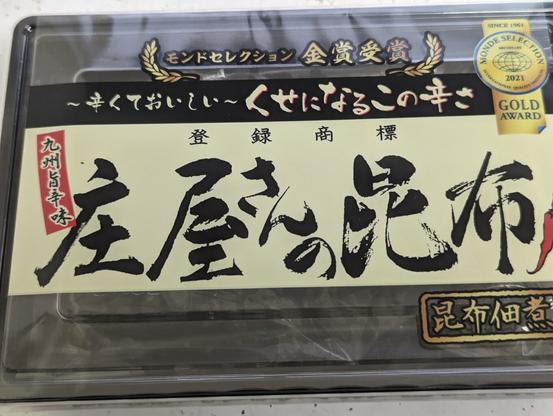 モンドセレクション 金賞受賞
SINCE 1961
MONDE SELECTION
2021
GOLD
AWARD
～辛くておいしい～くせになるこの辛さ
登録商標
九州旨辛味
庄屋さんの昆布
昆布佃煮